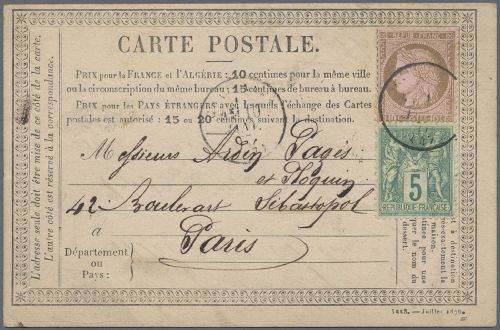 CARTE POSTALE.
PRIX pour la FRANCE et l'ALGÉRIE: 10 centimes pour la même ville
ou la circonscription du même bureau; 15 centimes de bureau à bureau.
PRIX pour les PAYS ÉTRANGERS avec lesquels l'échange des Cartes
postales est autorisé: 15 ou 20 centimes suivant la destination.
L'adresse seule doit être mise de ce côté de la carte.
L'autre côté est réservé à la correspondance.
REPUB. FRANC.
5
REPUBLIQUE FRANÇAISE
Messieurs Ardin Pagès
et Ploquin
42 Boulevart Sébastopol
à
Paris
Département
ou
Pays:
à destination
maison.
une
le nom du
1423. — Juillet 1876.